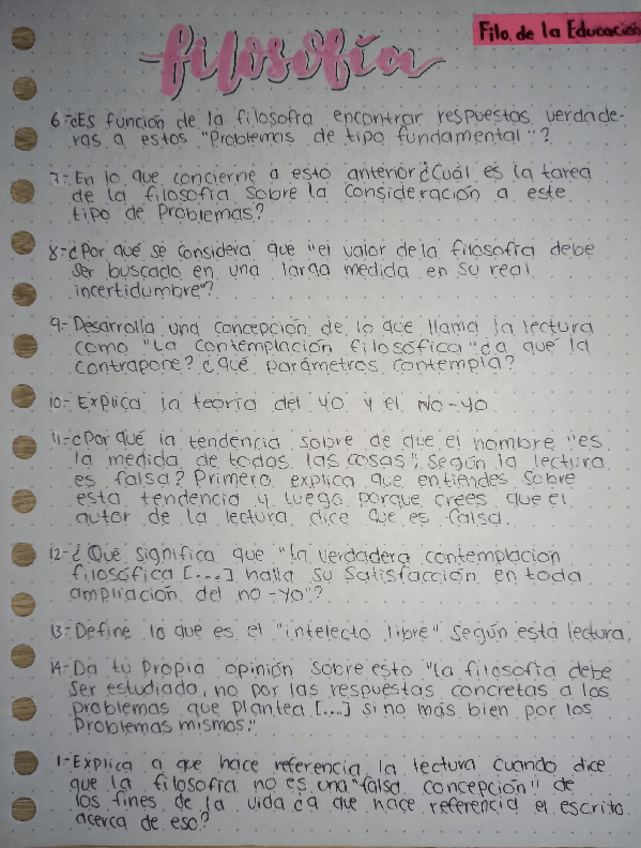 Filo. de la Educación
filosofía
6-¿Es función de la filosofía encontrar respuestas verdade-
ras a estos "Problemas de tipo fundamental"?
7-En lo que concierne a esto anterior ¿Cuál es la tarea
de la filosofía sobre la consideración a este
tipo de Problemas?
8-¿Por qué se considera que "el valor de la filosofía debe
ser buscado en una larga medida en su real
incertidumbre"?
9-Desarrolla una concepción de lo que llama la lectura
como "La contemplación filosófica" ¿a qué la
contrapone? ¿qué parámetros contempla?
10-Explica la teoría del yo y el No-yo
11-¿Por qué la tendencia sobre de que el hombre "es
la medida de todas las cosas", según la lectura
es falsa? Primero explica que entiendes sobre
esta tendencia y luego porque crees que el
autor de la lectura dice que es falsa.
12-¿Qué significa que "la verdadera contemplación
filosófica [...] halla su satisfacción en toda
ampliación del no-yo"?
13-Define lo que es el "intelecto libre" según esta lectura,
14-Da tu propia opinión sobre esto "la filosofía debe
ser estudiada, no por las respuestas concretas a los
problemas que plantea [...] si no más bien por los
Problemas mismos."
1-Explica a que hace referencia la lectura cuando dice
que la filosofía no es una "falsa concepción" de
los fines de la vida ¿a que hace referencia el escrito
acerca de eso?